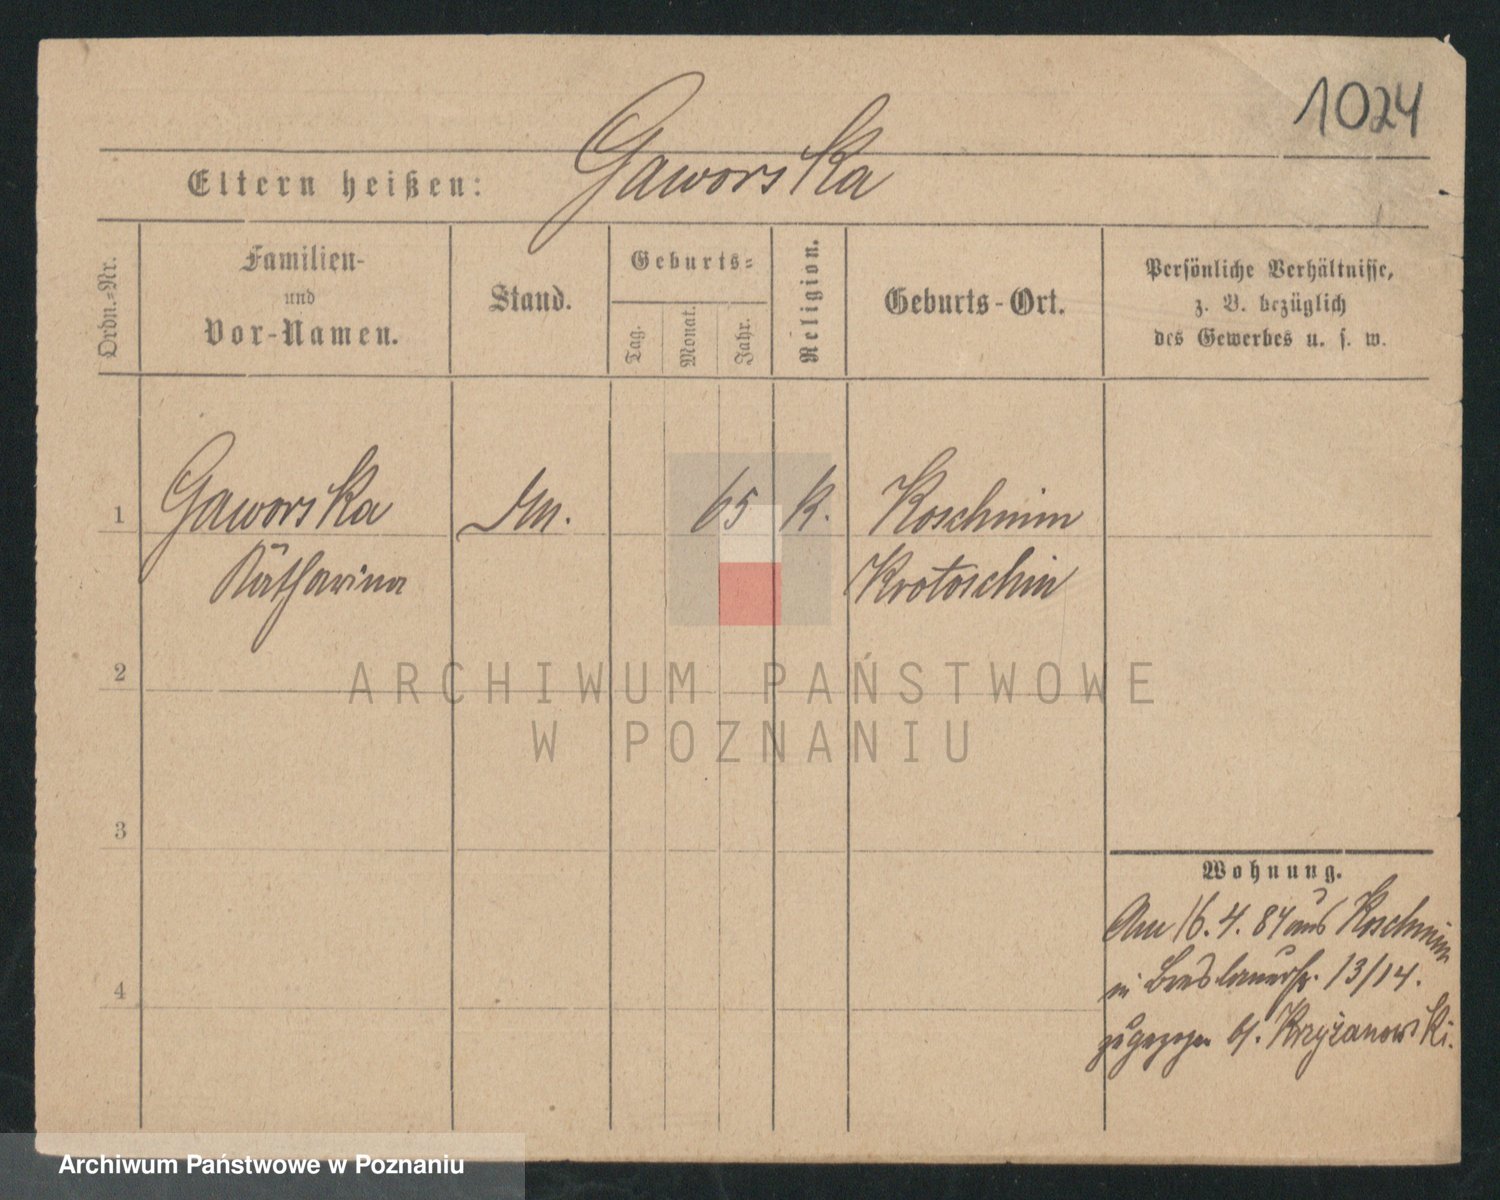 1024
Eltern heißen: Gaworska
Ordn.-Nr.
Familien-
und
Vor-Namen.
Stand.
Geburts-
Tag.
Monat.
Jahr.
Religion.
Geburts-Ort.
Persönliche Verhältnisse,
z. B. bezüglich
des Gewerbes u. s. w.
1 Gaworska 65 K. Koschmin
Katharina Krotoschin
2
ARCHIWUM PAŃSTWOWE
W POZNANIU
3
Wohnung.
Am 16.4.84 aus Koschmin
in Breslauerstr. 13/14.
zugezogen bf. Krzyżanowski.
4
Archiwum Państwowe w Poznaniu